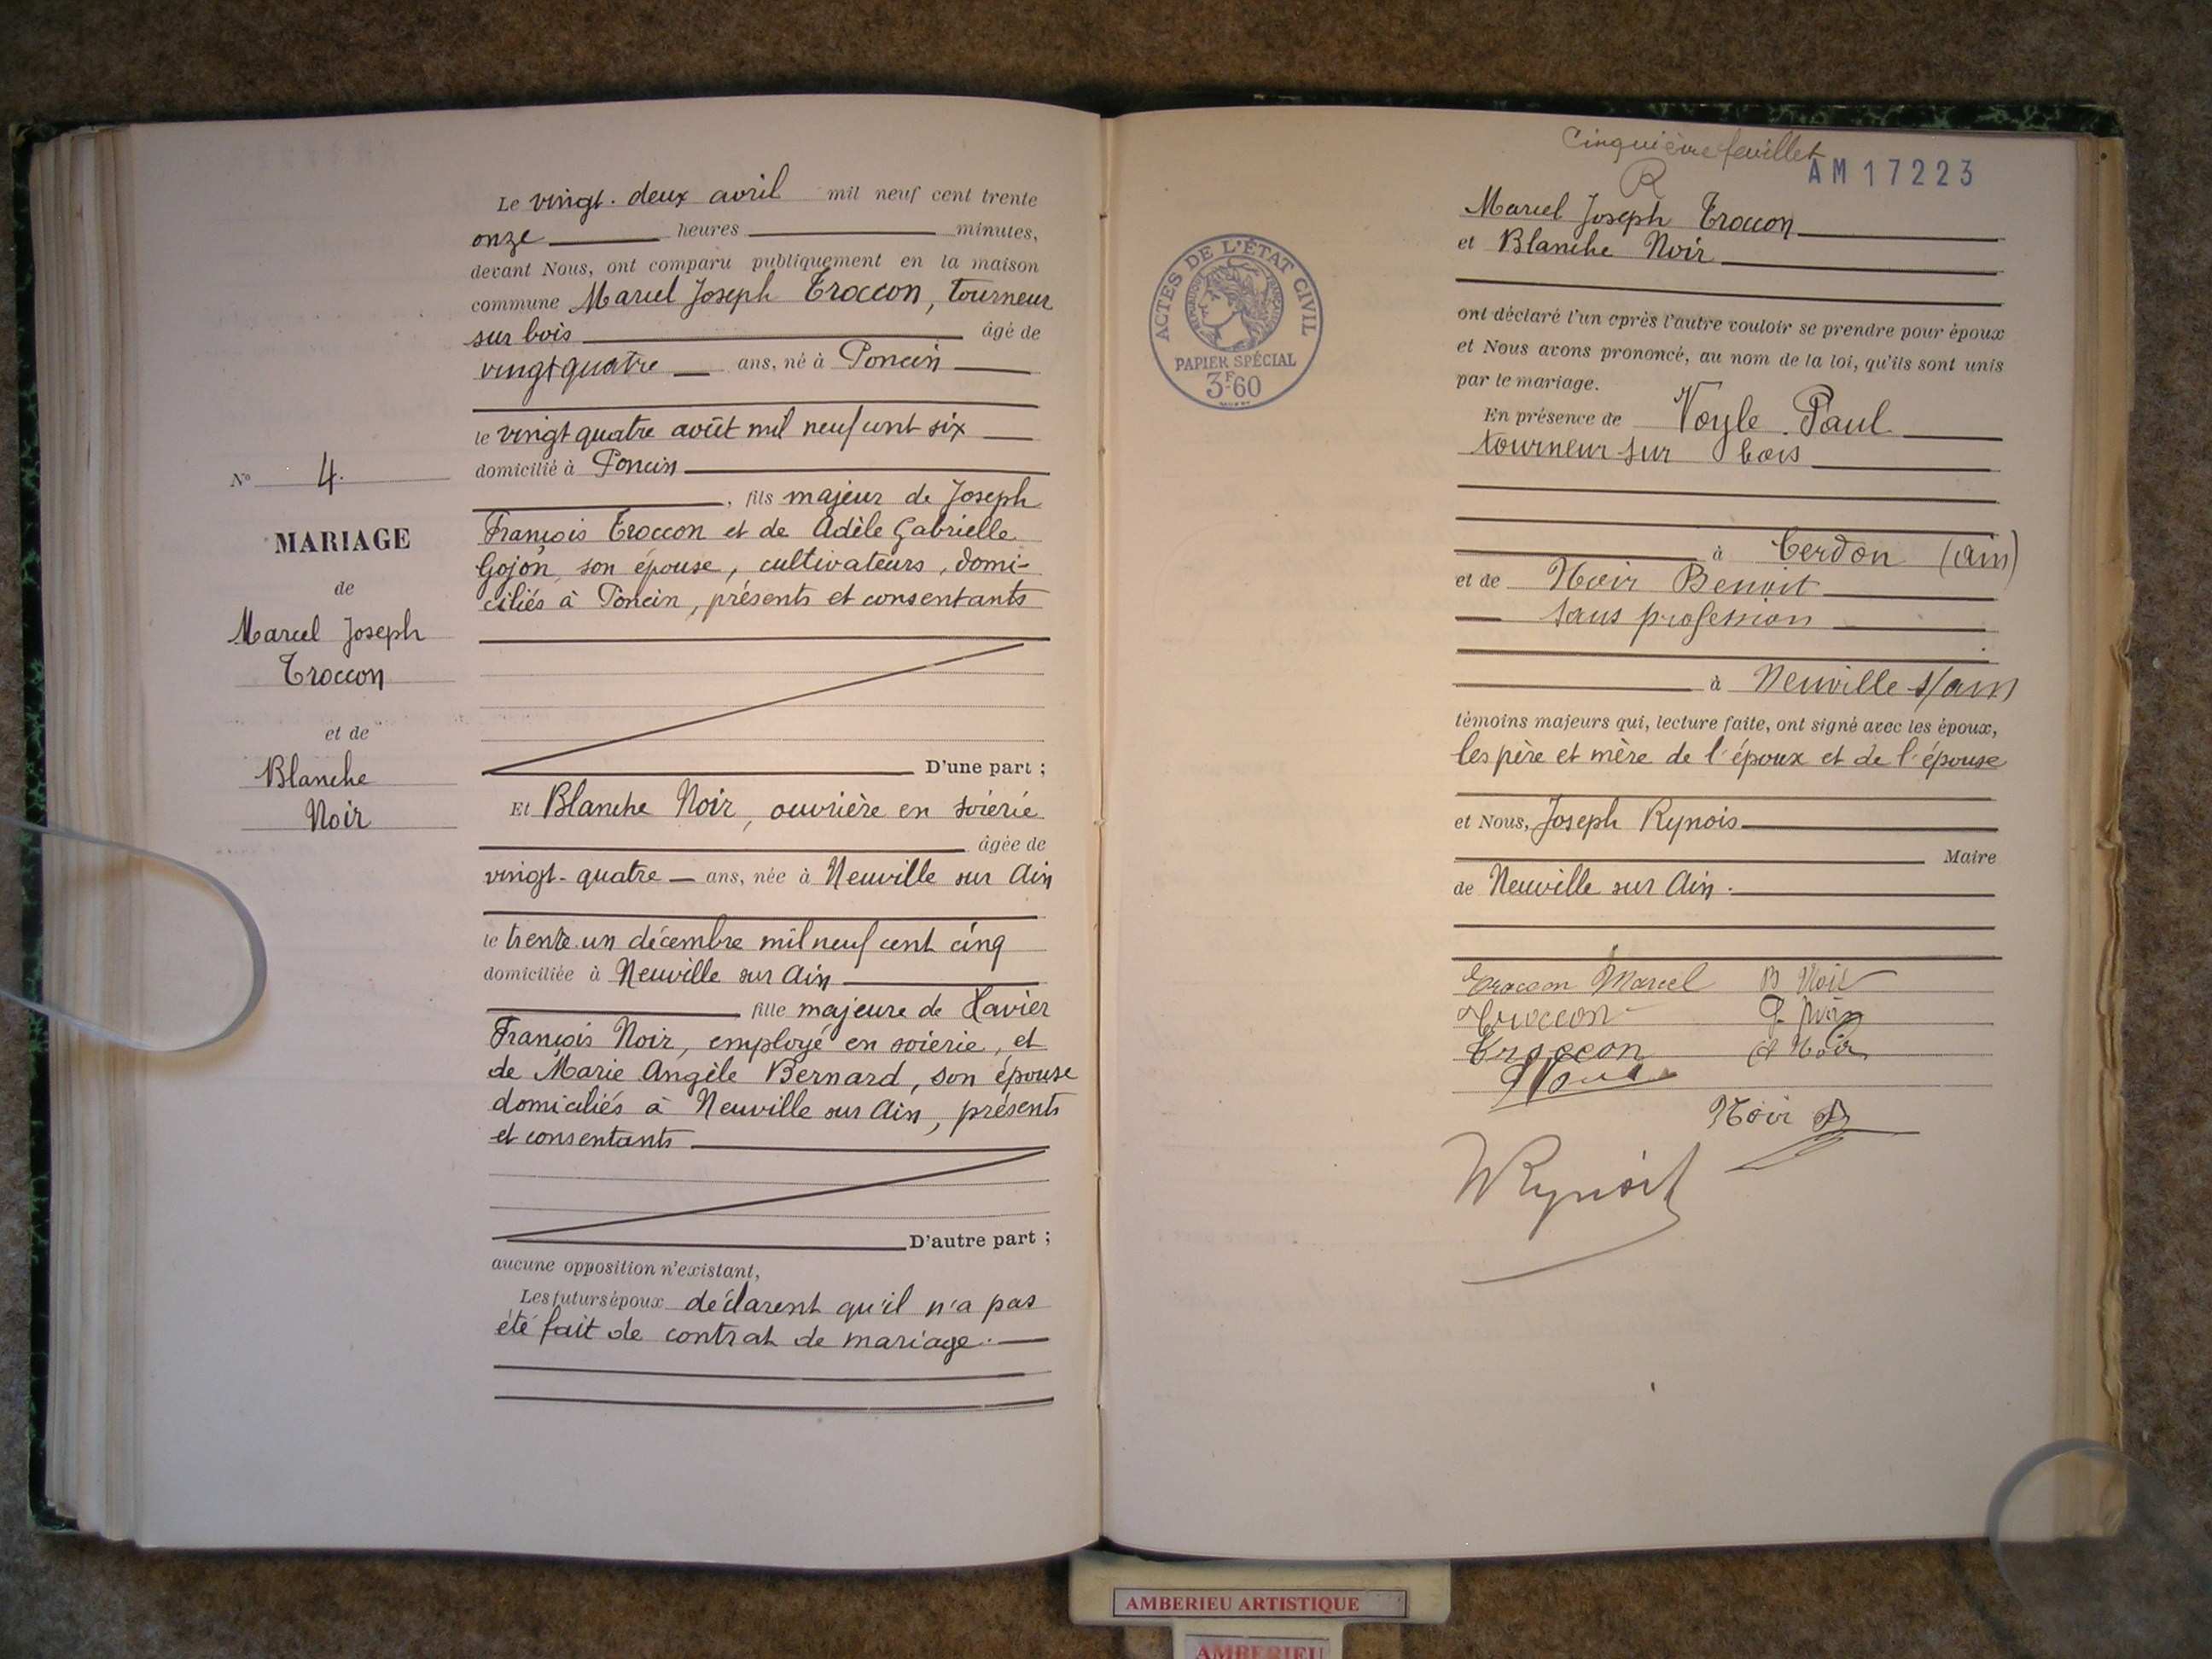 Le vingt-deux avril mil neuf cent trente
onze heures minutes,
devant Nous, ont comparu publiquement en la maison
commune Marcel Joseph Troccon, tourneur
sur bois âgé de
vingt quatre ans, né à Poncin
le vingt quatre août mil neuf cent six
domicilié à Poncin
, fils majeur de Joseph
François Troccon et de Adèle Gabrielle
Gojon, son épouse, cultivateurs, domi-
ciliés à Poncin, présents et consentants
D'une part ;
Et Blanche Noir, ouvrière en soierie
âgée de
vingt-quatre ans, née à Neuville sur Ain
le trente un décembre mil neuf cent cinq
domiciliée à Neuville sur Ain
fille majeure de Xavier
François Noir, employé en soierie, et
de Marie Angèle Bernard, son épouse
domiciliés à Neuville sur Ain, présents
et consentants
D'autre part ;
aucune opposition n'existant,
Les futurs époux déclarent qu'il n'a pas
été fait de contrat de mariage.
N° 4.
MARIAGE
de
Marcel Joseph
Troccon
et de
Blanche
Noir
Cinquième feuillet
R
AM 17223
ACTES DE L'ÉTAT CIVIL
RÉPUBLIQUE FRANÇAISE
PAPIER SPÉCIAL
3F60
Marcel Joseph Troccon
et Blanche Noir
ont déclaré l'un après l'autre vouloir se prendre pour époux
et Nous avons prononcé, au nom de la loi, qu'ils sont unis
par le mariage.
En présence de Voyle Paul
tourneur sur bois
à Cerdon (Ain)
et de Noir Benoit
sans profession
à Neuville s/ain
témoins majeurs qui, lecture faite, ont signé avec les époux,
les père et mère de l'époux et de l'épouse
et Nous, Joseph Rynois
Maire
de Neuville sur Ain.
Troccon Marcel B Noir
Troccon
Troccon
Noir B
Rynois
AMBERIEU ARTISTIQUE
AMBERIEU